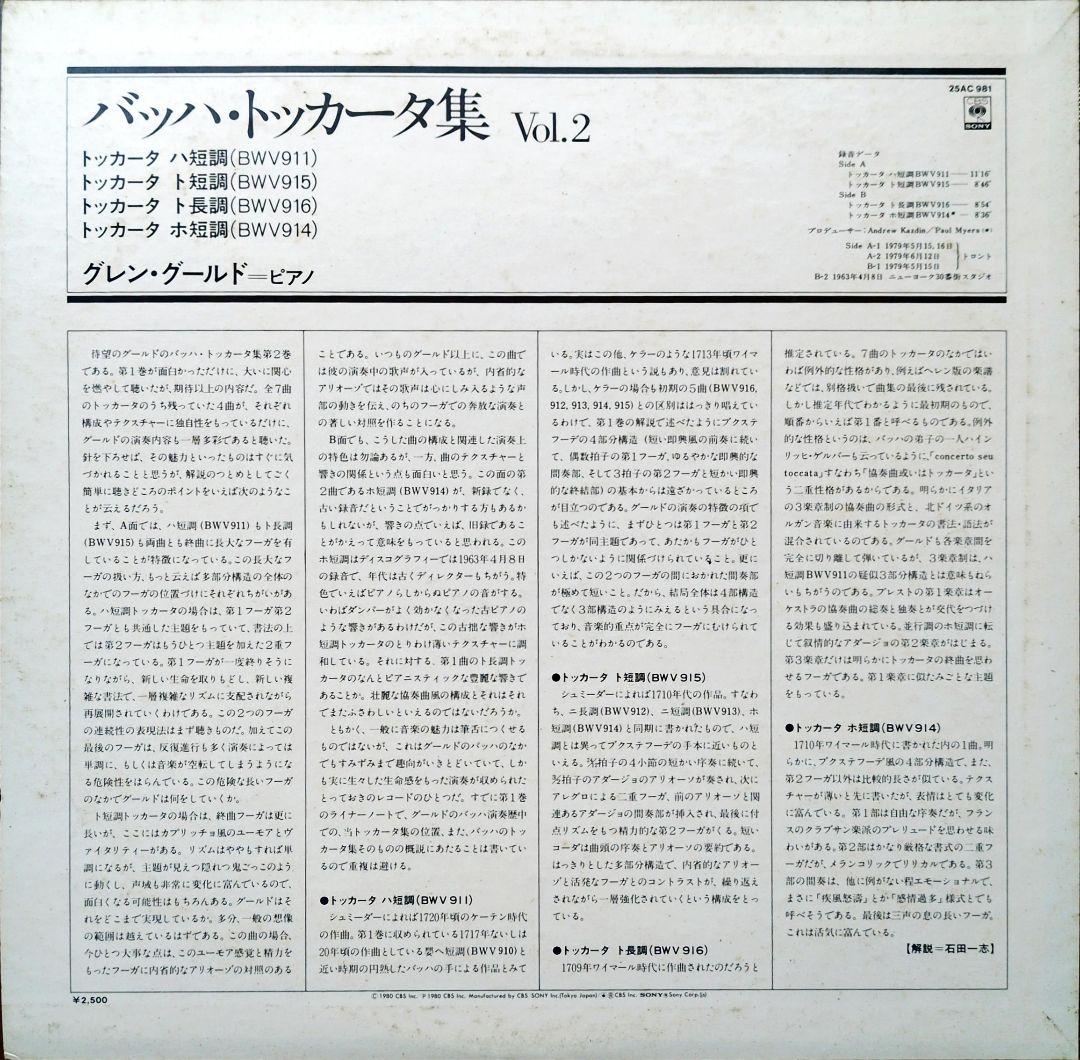 バッハ・トッカータ集 Vol.2
トッカータ ハ短調(BWV911)
トッカータ ト短調(BWV915)
トッカータ ト長調(BWV916)
トッカータ ホ短調(BWV914)
グレン・グールド=ピアノ
25AC 981
CBS
SONY
録音データ
Side A
トッカータ ハ短調BWV911── 11′16″
トッカータ ト短調BWV915── 8′46″
Side B
トッカータ ト長調BWV916── 8′54″
トッカータ ホ短調BWV914*─ 8′36″
プロデューサー:Andrew Kazdin/Paul Myers(*)
Side A-1 1979年5月15, 16日
A-2 1979年6月12日
B-1 1979年5月15日
トロント
B-2 1963年4月8日 ニューヨーク30番街スタジオ
待望のグールドのバッハ・トッカータ集第2巻
である。第1巻が面白かっただけに、大いに関心
を燃やして聴いたが、期待以上の内容だ。全7曲
のトッカータのうち残っていた4曲が、それぞれ
構成やテクスチャーに独自性をもっているだけに、
グールドの演奏内容も一層多彩であると聴いた。
針を下ろせば、その魅力といったものはすぐに気
づかれることと思うが、解説のつとめとしてごく
簡単に聴きどころのポイントをいえば次のようなこ
とが云えるだろう。
まず、A面では、ハ短調(BWV911)もト長調
(BWV915)も両曲とも終曲に長大なフーガを有
していることが特徴になっている。この長大なフ
ーガの扱い方、もっと云えば多部分構造の全体の
なかでのフーガの位置づけにそれぞれちがいがあ
る。ハ短調トッカータの場合は、第1フーガ第2
フーガとも共通した主題をもっていて、書法の上
では第2フーガはもうひとつ主題を加えた2重フ
ーガになっている。第1フーガが一度終りそうに
なりながら、新しい生命を取りもどし、新しい複
雑な書法で、一層複雑なリズムに支配されながら
再展開されていくわけである。この2つのフーガ
の連続性の表現法はまず聴きものだ。加えてこの
最後のフーガは、反復進行も多く演奏によっては
単調に、もしくは音楽が空転してしまうようにな
る危険性をはらんでいる。この危険な長いフーガ
のなかでグールドは何をしていくか。
ト短調トッカータの場合は、終曲フーガは更に
長いが、ここにはカプリッチョ風のユーモアとヴ
ァイタリティーがある。リズムはややもすれば単
調になるが、主題が見えつ隠れつ鬼ごっこのよう
に動くし、声域も非常に変化に富んでいるので、
面白くなる可能性はもちろんある。グールドはそ
れをどこまで実現しているか。多分、一般の想像
の範囲は越えているはずである。この曲の場合、
今ひとつ大事な点は、このユーモア感覚と精力を
もったフーガに内省的なアリオーゾの対照のある
ことである。いつものグールド以上に、この曲で
は彼の演奏中の歌声が入っているが、内省的な
アリオーゾではその歌声は心にしみ入るような声
部の動きを伝え、のちのフーガでの奔放な演奏と
の著しい対照を作ることになる。
B面でも、こうした曲の構成と関連した演奏上
の特色は勿論あるが、一方、曲のテクスチャーと
響きの関係という点も面白いと思う。この面の第
2曲であるホ短調(BWV914)が、新録でなく、
古い録音だということでがっかりする方もあるか
もしれないが、響きの点でいえば、旧録であるこ
とがかえって意味をもっていると思われる。この
ホ短調はディスコグラフィーでは1963年4月8日
の録音で、年代は古くディレクターもちがう。特
色でいえばピアノらしからぬピアノの音がする。
いわばダンパーがよく効かなくなった古ピアノの
ような響きがあるわけだが、この古拙な響きがホ
短調トッカータのとりわけ薄いテクスチャーに調
和している。それに対する、第1曲のト長調トッ
カータのなんとピアニスティックな豊麗な響きで
あることか。壮麗な協奏曲風の構成とそれはそれ
でまたふさわしいといえるのではないだろうか。
ともかく、一般に音楽の魅力は筆舌につくせる
ものではないが、これはグールドのバッハのなか
でもすみずみまで趣向がいきとどいていて、しか
も実に生々しい生命感をもった演奏が収められた
とっておきのレコードのひとつだ。すでに第1巻
のライナーノートで、グールドのバッハ演奏歴中
での、当トッカータ集の位置、また、バッハのトッ
カータ集そのものの概説にあたることは書いてい
るので重複は避ける。
●トッカータ ハ短調(BWV911)
シュミーダーによれば1720年頃のケーテン時代
の作曲。第1巻に収められている1717年ないしは
20年頃の作曲としている嬰ヘ短調(BWV910)と
近い時期の円熟したバッハの手による作品とみて
いる。実はこの他、ケラーのような1713年頃ワイマ
ール時代の作曲という説もあり、意見は割れてい
る。しかし、ケラーの場合も初期の5曲(BWV916,
912, 913, 914, 915)との区別ははっきり唱えてい
るわけで、第1巻の解説で述べたようにブクステ
フーデの4部分構造(短い即興風の前奏に続い
て、偶数拍子の第1フーガ、ゆるやかな即興的な
間奏部、そして3拍子の第2フーガと短かい即興
的な終結部)の基本からは遠ざかっているところ
が目立つのである。グールドの演奏の特徴の項で
も述べたように、まずひとつは第1フーガと第2
フーガが同主題であって、あたかもフーガがひと
つしかないように関係づけられていること。更に
いえば、この2つのフーガの間におかれた間奏部
が極めて短いこと。だから、結局全体は4部構造
でなく3部構造のようにみえるという具合になっ
ており、音楽的重点が完全にフーガにむけられて
いることがわかるのである。
●トッカータ ト短調(BWV915)
シュミーダーによれば1710年代の作品。すなわ
ち、ニ長調(BWV912)、ニ短調(BWV913)、ホ
短調(BWV914)と同期に書かれたもので、ハ短
調とは異ってブクステフーデの手本に近いものと
いえる。拍子の4小節の短かい序奏に続いて、
拍子のアダージョのアリオーソが奏され、次に
アレグロによる二重フーガ、前のアリオーソと関
連あるアダージョの間奏部が挿入され、最後に付
点リズムをもつ精力的な第2フーガがくる。短い
コーダは曲頭の序奏とアリオーソの要約である。
はっきりとした多部分構成で、内省的なアリオー
ゾと活発なフーガとのコントラストが、繰り返え
されながら一層強化されていくという構成をとっ
ている。
●トッカータ ト長調(BWV916)
1709年ワイマール時代に作曲されたのだろうと
推定されている。7曲のトッカータのなかではい
わば例外的な性格があり、例えばヘレン版の楽譜
などでは、別格扱いで曲集の最後に残されている。
しかし推定年代でわかるように最初期のもので、
順番からいえば第1番と呼べるものである。例外
的な性格というのは、バッハの弟子の一人ハイン
リッヒ・ゲルバーも云っているように、「concerto seu
toccata」すなわち「協奏曲或いはトッカータ」とい
う二重性格があるからである。明らかにイタリア
の3楽章制の協奏曲の形式と、北ドイツ系のオ
ルガン音楽に由来するトッカータの書法・語法が
混合されているのである。グールドも各楽章間を
完全に切り離して弾いているが、3楽章制は、ハ
短調BWV911の疑似3部分構造とは意味もねら
いもちがうのである。プレストの第1楽章はオー
ケストラの協奏曲の総奏と独奏とが交代をつづけ
る効果も盛り込まれている。並行調のホ短調に転
じて叙情的なアダージョの第2楽章がはじまる。
第3楽章だけは明らかにトッカータの終曲を思わ
せるフーガである。第1楽章に似たみごとな主題
をもっている。
●トッカータ ホ短調(BWV914)
1710年ワイマール時代に書かれた内の1曲。明
らかに、ブクステフーデ風の4部分構成で、また、
第2フーガ以外は比較的長さが似ている。テクス
チャーが薄いと先に書いたが、表情はとても変化
に富んでいる。第1部は自由な序奏だが、フラン
スのクラブサン楽派のプレリュードを思わせる味
わいがある。第2部はかなり厳格な書式の二重フ
ーガだが、メランコリックでリリカルである。第3
部の間奏は、他に例がない程エモーショナルで、
まさに「疾風怒濤」とか「感情過多」様式とでも
呼べそうである。最後は三声の息の長いフーガ。
これは活気に富んでいる。
【解説=石田一志】
¥2,500
Ⓒ 1980 CBS Inc. Ⓟ 1980 CBS Inc. Manufactured by CBS SONY Inc.(Tokyo Japan)/ ® CBS Inc. SONY ® Sony Corp.(s)